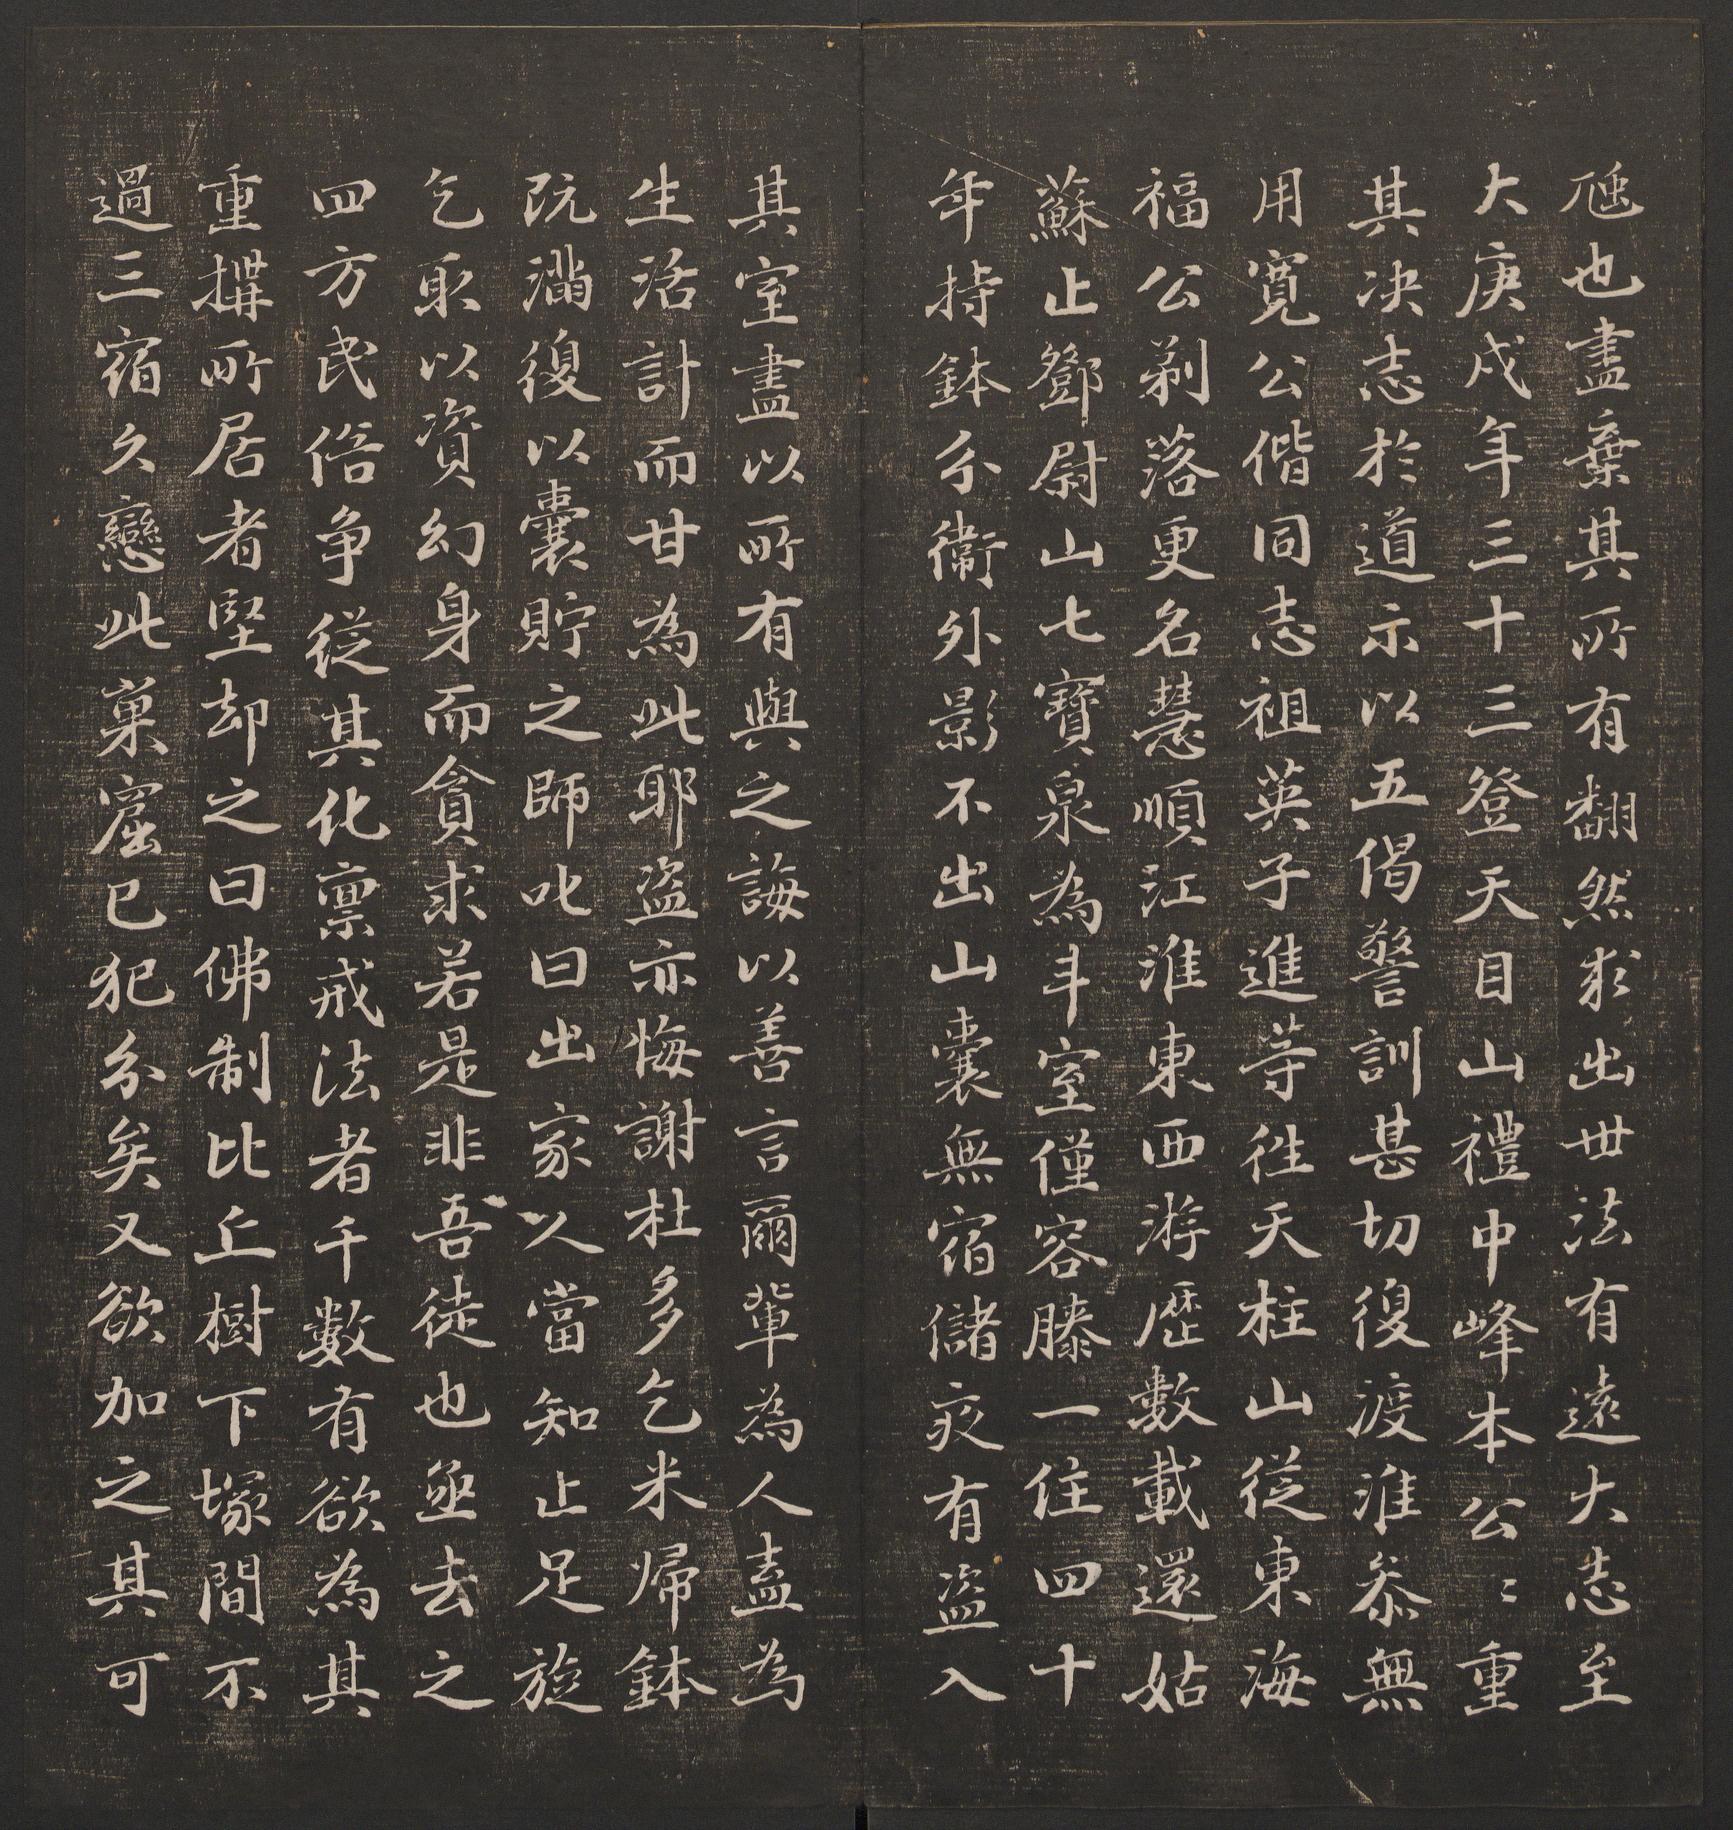 卮也盡棄其所有翻然求出世法有遠大志至
大庚戌年三十三登天目山禮中峰本公〻重
其决志於道示以五偈警訓甚切復渡淮叅無
用寬公偕同志祖英子進等徃天柱山從東海
福公剃落更名慧順江淮東西游歷數載還姑
蘇止鄧尉山七寶泉為斗室僅容膝一住四十
年持鉢分衞外影不出山囊無宿儲夜有盜入
其室盡以所有與之誨以善言爾輩為人盍為
生活計而甘為此耶盜亦悔謝杜多乞米歸鉢
既滿復以囊貯之師叱曰出家人當知止足旋
乞取以資幻身而貪求若是非吾徒也亟去之
四方民俗争從其化禀戒法者千數有欲為其
重搆所居者堅却之曰佛制比丘樹下塚間不
過三宿久戀此巢窟已犯分矣又欲加之其可